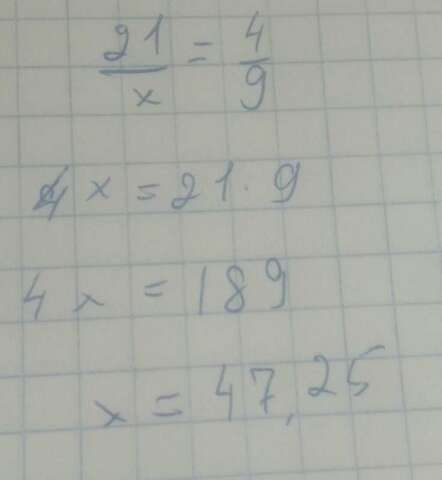 21/x = 4/9
4x = 21 · 9
4x = 189
x = 47,25